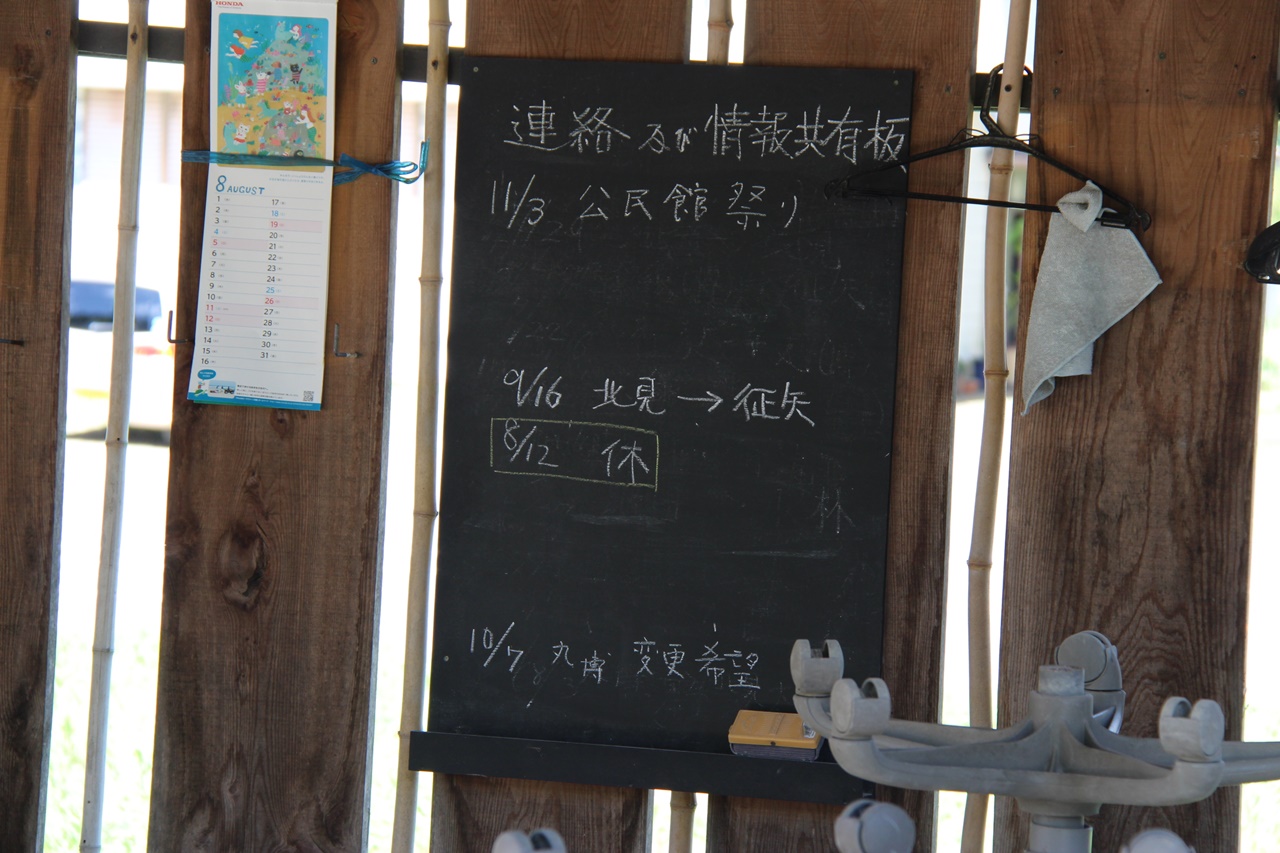 HONDA
8 AUGUST
1 17
2 18
3 19
4 20
5 21
6 22
7 23
8 24
9 25
10 26
11 27
12 28
13 29
14 30
15 31
16
連絡及び情報共有板
11/3 公民館祭り
9/16 北見→征矢
8/12 休
林
10/7 丸博 変更希望